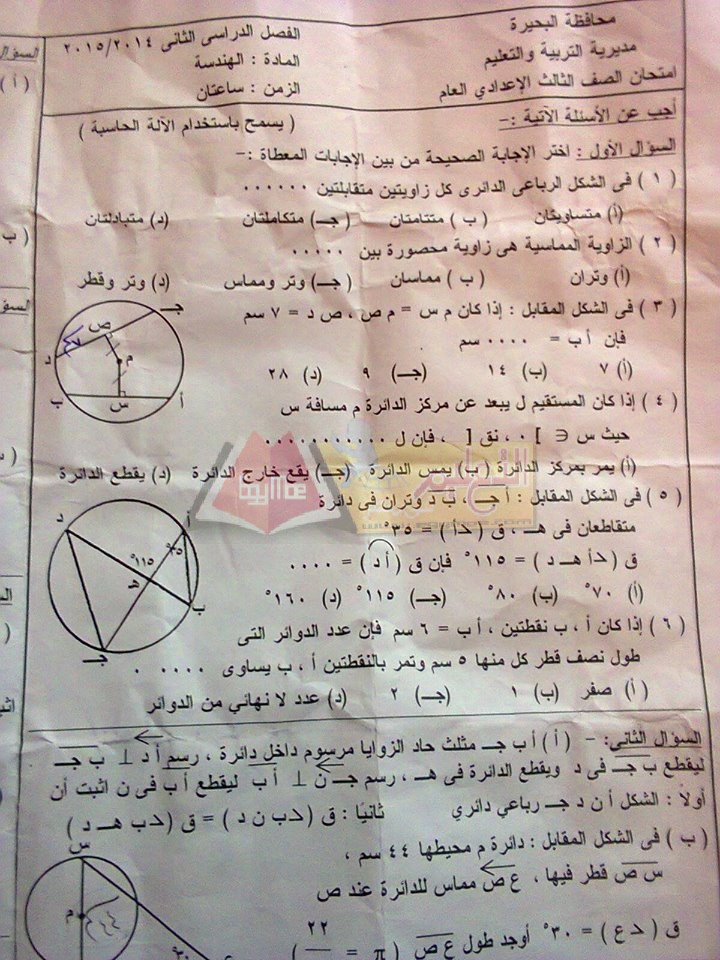 محافظة البحيرة
مديرية التربية والتعليم
امتحان الصف الثالث الإعدادي العام
الفصل الدراسى الثانى ٢٠١٥/٢٠١٤
المادة : الهندسة
الزمن : ساعتان
أجب عن الأسئلة الآتية :-
( يسمح باستخدام الآلة الحاسبة )
السؤال الأول : اختر الإجابة الصحيحة من بين الإجابات المعطاة :-
( ١ ) فى الشكل الرباعى الدائرى كل زاويتين متقابلتين ٠٠٠٠٠٠
(أ) متساويتان (ب) متتامتان (جـ) متكاملتان (د) متبادلتان
( ٢ ) الزاوية المماسية هى زاوية محصورة بين ٠٠٠٠٠
(أ) وتران (ب) مماسان (جـ) وتر ومماس (د) وتر وقطر
( ٣ ) فى الشكل المقابل : إذا كان م س = م ص ، ص د = ٧ سم
فإن أ ب = ٠٠٠٠ سم
(أ) ٧ (ب) ١٤ (جـ) ٩ (د) ٢٨
جـ
ص
د
م
ب
س
أ
( ٤ ) إذا كان المستقيم ل يبعد عن مركز الدائرة م مسافة س
حيث س ∈ ] ٠ ، نق [ ، فإن ل ٠٠٠٠٠٠٠٠٠٠٠
(أ) يمر بمركز الدائرة (ب) يمس الدائرة (جـ) يقع خارج الدائرة (د) يقطع الدائرة
( ٥ ) فى الشكل المقابل : أ جـ ، ب د وتران فى دائرة
متقاطعان فى هـ ، ق (>أ ) = ٣٥°
ق (>أ هـ د ) = ١١٥° فإن ق ( أ د ) = ٠٠٠٠
(أ) ٧٠° (ب) ٨٠° (جـ) ١١٥° (د) ١٦٠°
د
أ
٣٥
١١٥°
هـ
ب
جـ
( ٦ ) إذا كان أ ، ب نقطتين ، أ ب = ٦ سم فإن عدد الدوائر التى
طول نصف قطر كل منها ٥ سم وتمر بالنقطتين أ ، ب يساوى ٠٠٠٠٠
(أ) صفر (ب) ١ (جـ) ٢ (د) عدد لا نهائي من الدوائر
السؤال الثانى :- (أ) أ ب جـ مثلث حاد الزوايا مرسوم داخل دائرة ، رسم أ د ⊥ ب جـ
ليقطع ب جـ فى د ويقطع الدائرة فى هـ ، رسم جـ ن ⊥ أ ب ليقطع أ ب فى ن اثبت أن
أولاً : الشكل أ ن د جـ رباعي دائري ثانيًا : ق (>ب ن د ) = ق (>ب هـ د )
(ب) فى الشكل المقابل : دائرة م محيطها ٤٤ سم ،
س ص قطر فيها ، ع ص مماس للدائرة عند ص
ق (>ع) = ٣٠° أوجد طول ع ص ( π = ٢٢
س
م
٣٠°
السؤال
( أ )
( ب
السؤال